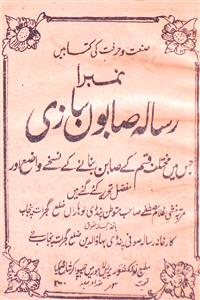 صنعت و حرفت کی کتابیں
نمبرا
رسالہ صابون سازی
جس میں مختلف قسم کے صابن بنانے کے نسخے واضح اور
مفصل تحریر کئے گئے ہیں
مرتبہ منشی غلام مصطفے صاحب متوطن پنڈی لوہاراں ضلع گجرات پنجاب
کارخانہ رسالہ صوفی پنڈی بہاؤالدین ضلع گجرات پنجاب نے